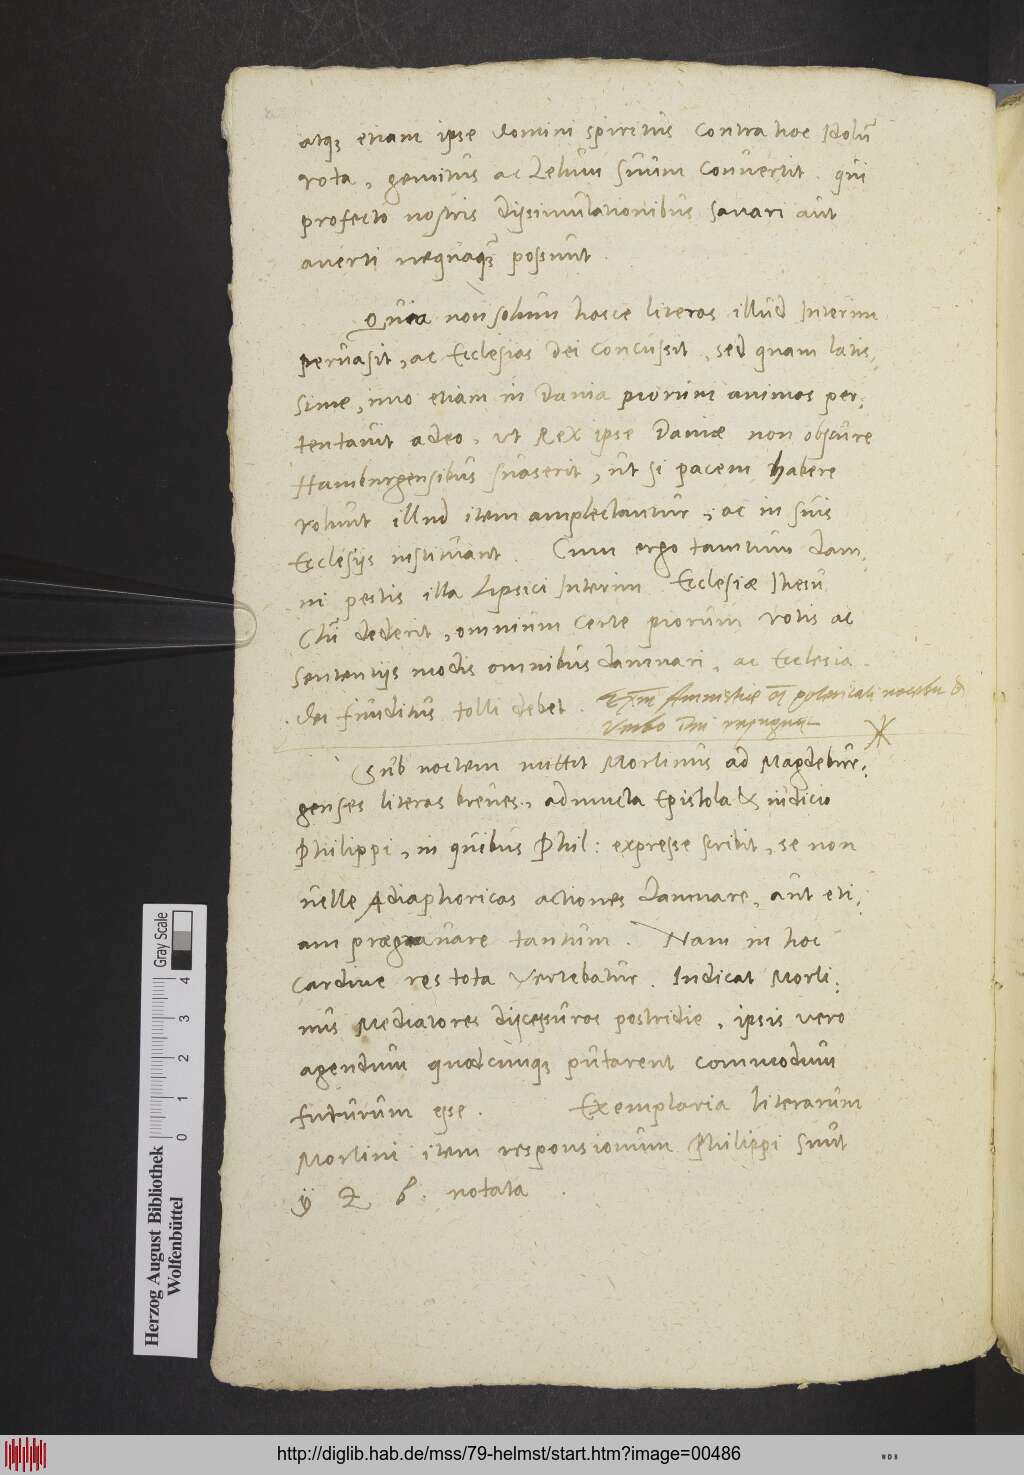 atq; etiam ipse domini spiritus contra hoc Idolū
vota, gemitus ac Zelum suum convertit. qui
profecto nostris dissimulationibus sanari aut
averti nequaq̃; possunt.
Quia non solum hasce literas illud Interim
pervasit, ac Ecclesias Dei concussit, sed quam latis,
sime, imo etiam in Dania piorum animos per,
tentavit adeo, ut Rex ipse Daniæ non obscure
Hamburgensibus suaserit, ut si pacem habere
volunt illud item amplectantur, ac in suis
Ecclesiis instituant. Cum ergo tantum dam,
ni pestis illa Lipsici Interim Ecclesiæ Ihesu
Chri dederit, omnium certe piorum votis ac
sententijs modis omnibus damnari, ac Ecclesia
dei funditus tolli debet.
verbo Dni
Sub noctem mittit Morlinus ad Magdebur,
genses literas breves, adiuncta Epistola & iudicio
Philippi, in quibus Phil: expresse scribit, se non
velle Adiaphoricas actiones damnare, aut eti,
am prægravare tantum. Nam in hoc
cardine res tota vertebatur. Indicat Morli,
nus Mediatores discessuros postridie, ipsis vero
agendum quodcunq; putarent commodum
futurum esse. Exemplaria literarum
Morlini item responsionum Philippi sunt
ÿ Z b. notata.
Herzog August Bibliothek
Wolfenbüttel
0 1 2 3 4
Gray Scale
http://diglib.hab.de/mss/79-helmst/start.htm?image=00486